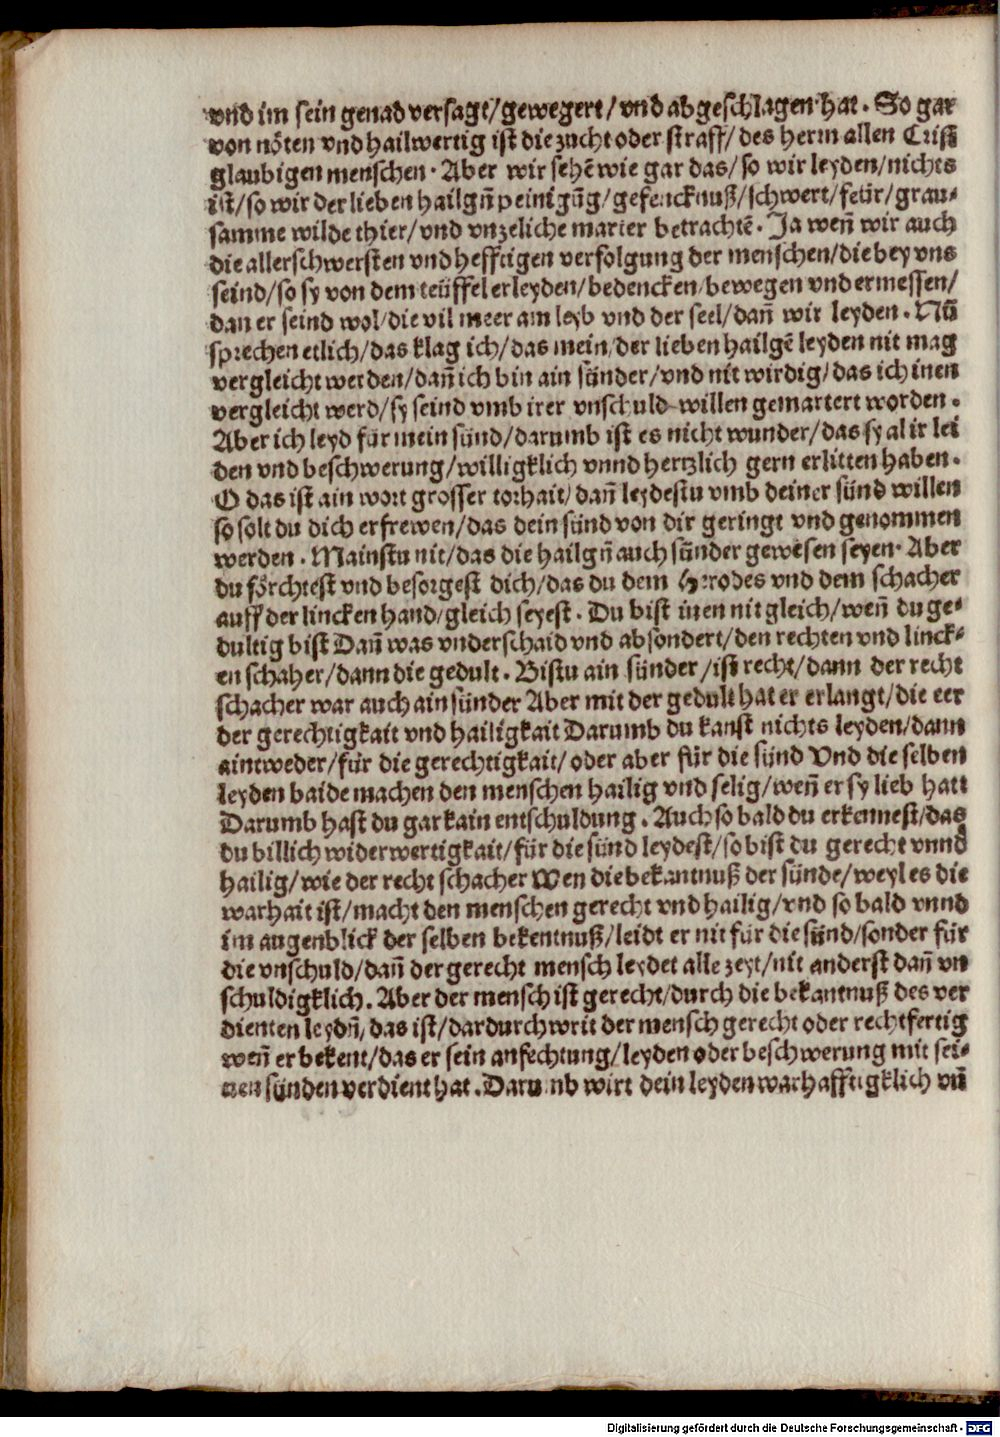 vnd im sein genad versagt/gewegert/vnd abgeschlagen hat. So gar
von nöten vnd hailwertig ist die zucht oder straff/des herrn allen Crist̄
glaubigen menschen. Aber wir sehē wie gar das/so wir leyden/nichts
ist/so wir der lieben hailgn̄ peinigūg/gefencknuß/schwert/feür/grau⸗
samme wilde thier/vnd vnzeliche marter betrachtē. Ja wen̄ wir auch
die allerschwersten vnd hefftigen verfolgung der menschen/die bey vns
seind/so sy von dem teüffel erleyden/bedencken/bewegen vnd ermessen/
dan er seind wol/die vil meer am leyb vnd der seel/dan̄ wir leyden. Nū
sprechen etlich/das klag ich/das mein/der lieben hailgē leyden nit mag
vergleicht werden/dan̄ ich bin ain sünder/vnd nit wirdig/das ich inen
vergleicht werd/sy seind vmb irer vnschuld willen gemartert worden.
Aber ich leyd für mein sünd/darumb ist es nicht wunder/das sy al ir lei
den vnd beschwerung/willigklich vnnd hertzlich gern erlitten haben.
O das ist ain wort grosser torhait/dan̄ leydestu vmb deiner sünd willen
so solt du dich erfrewen/das dein sünd von dir geringt vnd genommen
werden. Mainstu nit/das die hailgn̄ auch sünder gewesen seyen. Aber
du förchtest vnd besorgest dich/das du dem Herodes vnd dem schacher
auff der lincken hand/gleich seyest. Du bist inen nit gleich/wen̄ du ge⸗
dultig bist Dan̄ was vnderschaid vnd absondert/den rechten vnd linck⸗
en schaher/dann die gedult. Bistu ain sünder/ist recht/dann der recht
schacher war auch ain sünder Aber mit der gedult hat er erlangt/die eer
der gerechtigkait vnd hailigkait Darumb du kanst nichts leyden/dann
aintweder/für die gerechtigkait/oder aber für die sünd Vnd die selben
leyden baide machen den menschen hailig vnd selig/wen̄ er sy lieb hatt
Darumb hast du gar kain entschuldung. Auch so bald du erkennest/das
du billich widerwertigkait/für die sünd leydest/so bist du gerecht vnnd
hailig/wie der recht schacher Wen die bekantnuß der sünde/weyl es die
warhait ist/macht den menschen gerecht vnd hailig/vnd so bald vnnd
im augenblick der selben bekentnuß/leidt er nit für die sünd/sonder für
die vnschuld/dan̄ der gerecht mensch leydet alle zeyt/nit anderst dan̄ vn
schuldigklich. Aber der mensch ist gerecht/durch die bekantnuß des ver
dienten leydn̄/das ist/dardurch writ der mensch gerecht oder rechtfertig
wen̄ er bekent/das er sein anfechtung/leyden oder beschwerung mit sei⸗
nen sünden verdient hat. Darumb wirt dein leyden warhafftigklich vn̄
Digitalisierung gefördert durch die Deutsche Forschungsgemeinschaft - DFG